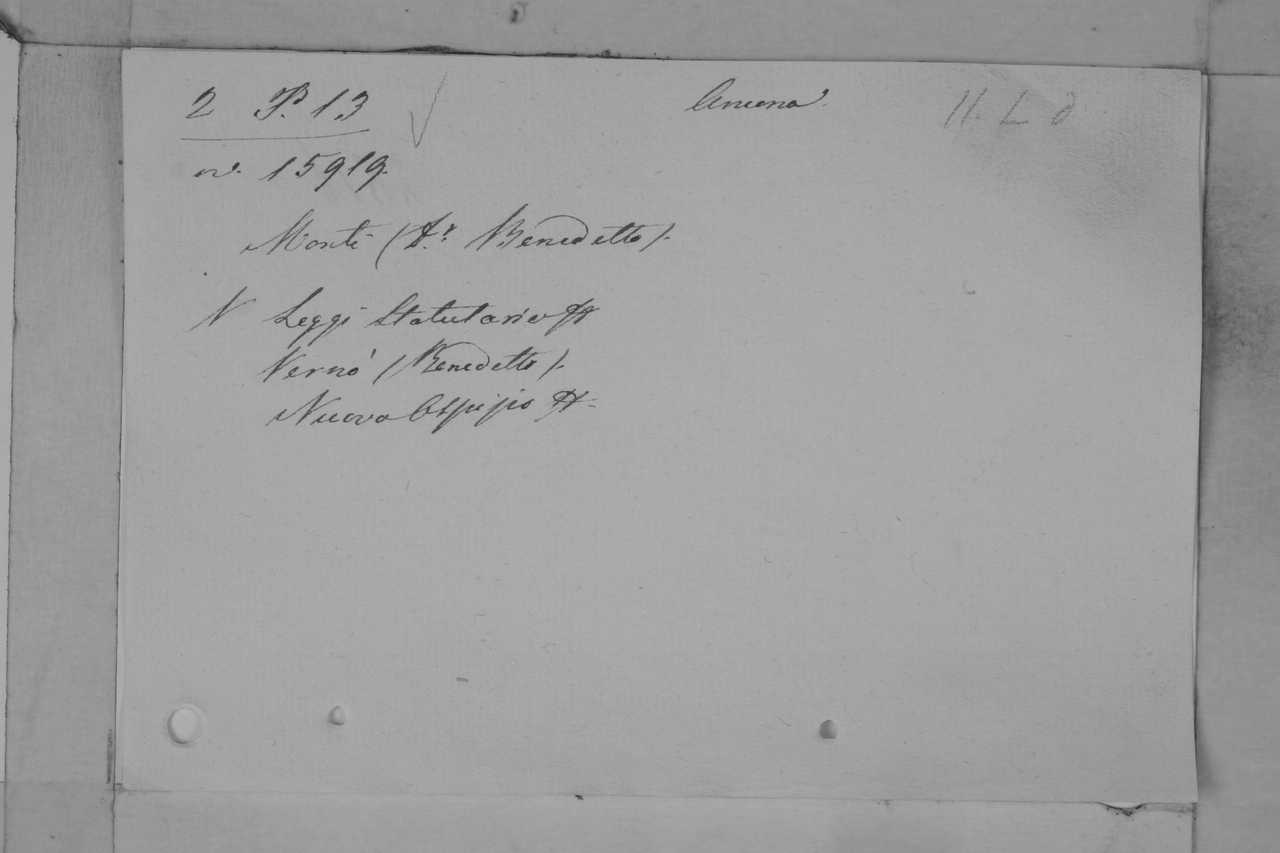 2 P. 13
Ancona
11. L d
nº. 15919.
Monti (Dr. Benedetto).
N Leggi Statutarie #
Vernò (Benedetto).
Nuovo Ospizio #